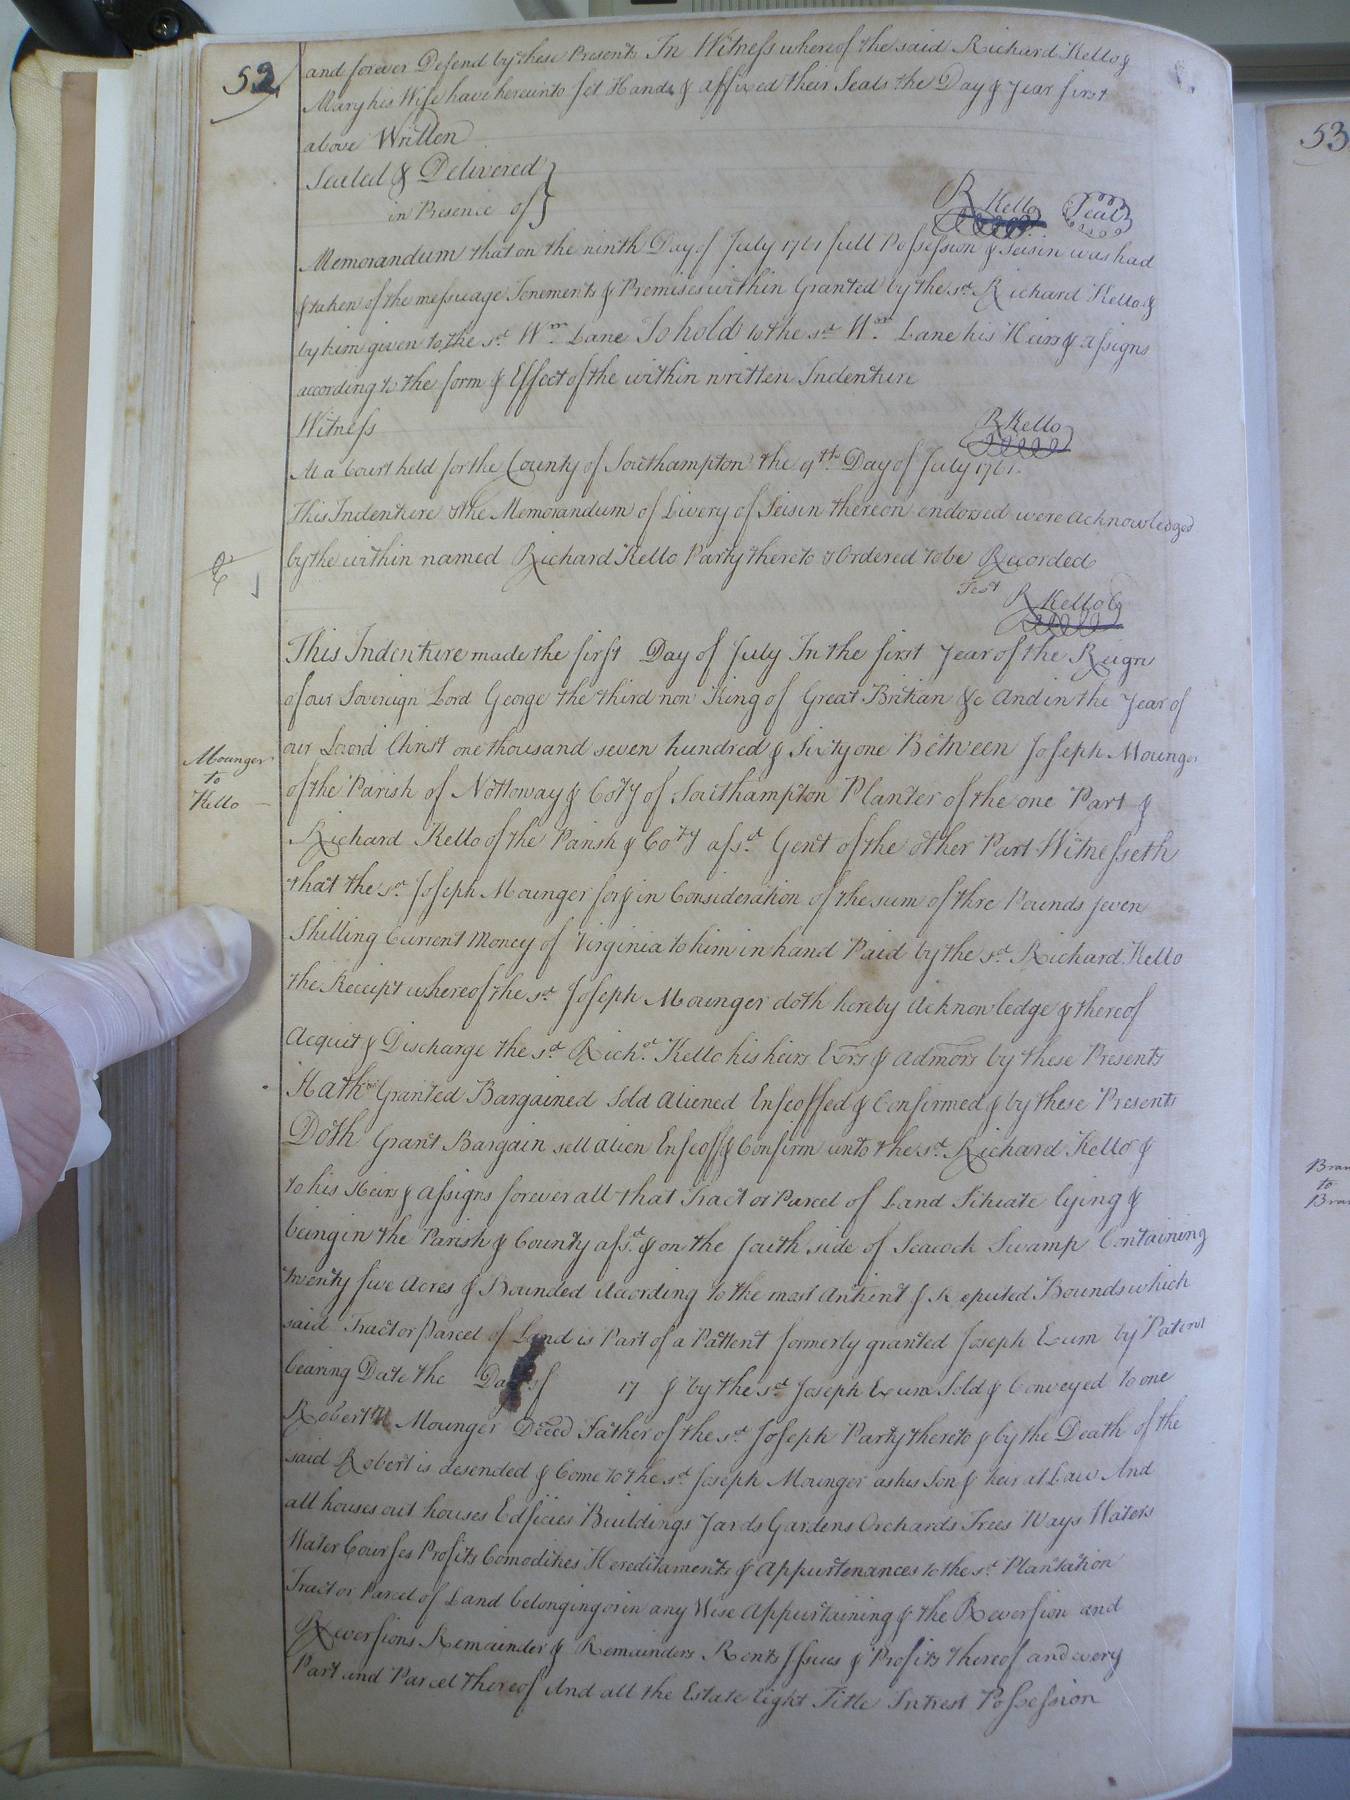 52
and forever Defend by these Presents In Witness whereof the said Richard Kello &
Mary his Wife have hereunto set Hands & affixed their Seals the Day & Year first
above Written
Sealed & Delivered
in Presence of
R Kello Seal
Memorandum that on the ninth Day of July 1761 full Possession & Seisin was had
& taken of the messuage Tenements & Premises within Granted by the sd. Richard Kello &
by him given to the sd. Wm. Lane To hold to the sd. Wm. Lane his Heirs & assigns
according to the form & Effect of the within written Indenture
Witness
R Kello
At a Court held for the County of Southampton the 9th. Day of July 1761.
This Indenture & the Memorandum of Livery of Seisin thereon endorsed were acknowledged
by the within named Richard Kello Party thereto & Ordered to be Recorded
Test
R Kello
This Indenture made the first Day of July In the first Year of the Reign
of our Sovereign Lord George the third now King of Great Britian &c And in the Year of
our Lord Christ one thousand seven hundred & Sixty one Between Joseph Mounger
Mounger
to
Kello
of the Parish of Nottoway & Coty of Southampton Planter of the one Part &
Richard Kello of the Parish & Coty afsd. Gent of the other Part Witnesseth
that the sd. Joseph Mounger for & in Consideration of the sum of thre Pounds seven
Shilling Current Money of Virginia to him in hand Paid by the sd. Richard Kello
the Receipt whereof the sd. Joseph Mounger doth hereby Acknowledge & thereof
Acquit & Discharge the sd. Richd. Kello his heirs Exrs & admors by these Presents
Hath Granted Bargained Sold Aliened Enfeoffed & Confirmed & by these Presents
Doth Grant Bargain sell alien Enfeoff & Confirm unto the sd. Richard Kello &
to his Heirs & Assigns forever all that Tract or Parcel of Land Situate lying &
being in the Parish & County afsd. & on the south side of Seacock Swamp Containing
twenty five Acres & Bounded According to the most Antient & Reputed Bounds which
said Tract or Parcel of Land is Part of a Pattent formerly granted Joseph Exum by Patent
bearing Date the Day of 17 & by the sd. Joseph Exum Sold & Conveyed to one
Robert Mounger Deced Father of the sd. Joseph Party thereto & by the Death of the
said Robert is desended & Come to the sd. Joseph Mounger as his Son & heir at Law And
all houses out houses Edficies Buildings Yards Gardens Orchards Trees Ways Waters
Water Courses Profits Comodities Hereditaments & Appurtenances to the sd. Plantation
Tract or Parcel of Land belonging or in any Wise Appurtaining & the Reversion and
Reversions Remainder & Remainders Rents Issues & Profits thereof and every
Part and Parcel thereof And all the Estate Right Title Intrest Possession
53
to